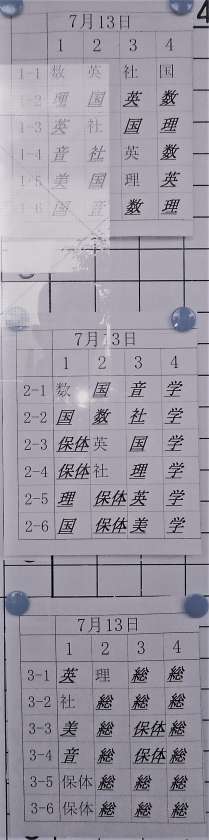 7月13日
1 2 3 4
1-1 数 英 社 国
1-2 理 国 英 数
1-3 英 社 国 理
1-4 音 社 英 数
1-5 美 国 理 英
1-6 国 音 数 理
7月13日
1 2 3 4
2-1 数 国 音 学
2-2 国 数 社 学
2-3 保体 英 国 学
2-4 保体 社 理 学
2-5 理 保体 英 学
2-6 国 保体 美 学
7月13日
1 2 3 4
3-1 英 理 総 総
3-2 社 総 総 総
3-3 美 総 保体 総
3-4 音 総 保体 総
3-5 保体 総 総 総
3-6 保体 総 総 総